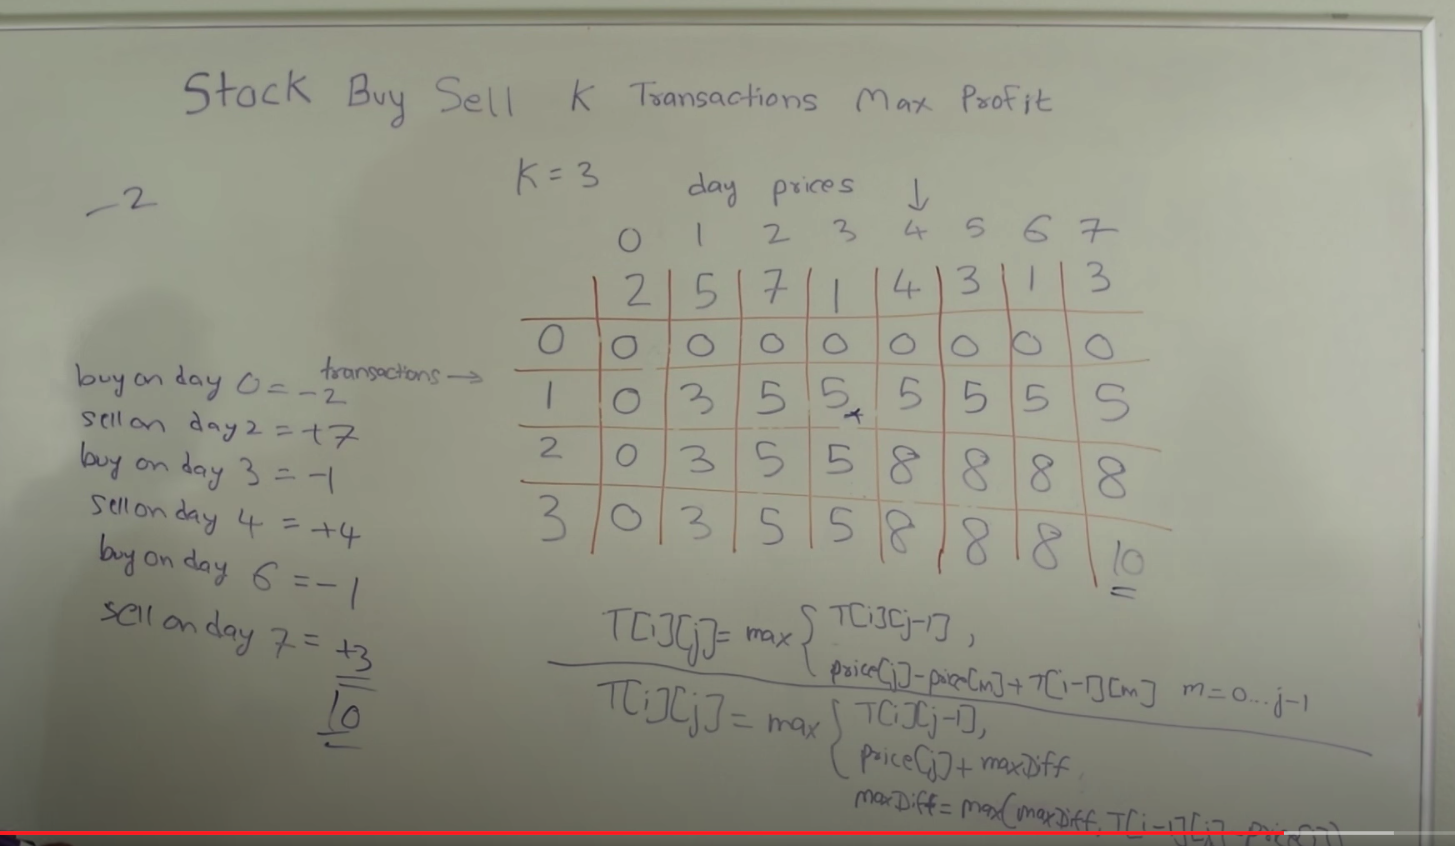 Stock Buy Sell K Transactions Max Profit
K = 3
day prices ↓
-2
0 1 2 3 4 5 6 7
2 5 7 1 4 3 1 3
0 0 0 0 0 0 0 0 0
transactions →
1 0 3 5 5 5 5 5 5
2 0 3 5 5 8 8 8 8
3 0 3 5 5 8 8 8 10
buy on day 0 = -2
sell on day 2 = +7
buy on day 3 = -1
sell on day 4 = +4
buy on day 6 = -1
sell on day 7 = +3
10
T[i][j] = max { T[i][j-1],
price[j]-price[m]+T[i-1][m] m=0...j-1
T[i][j] = max { T[i][j-1],
price[j]+maxDiff
maxDiff = max(maxDiff, T[i-1][j]-price[j])